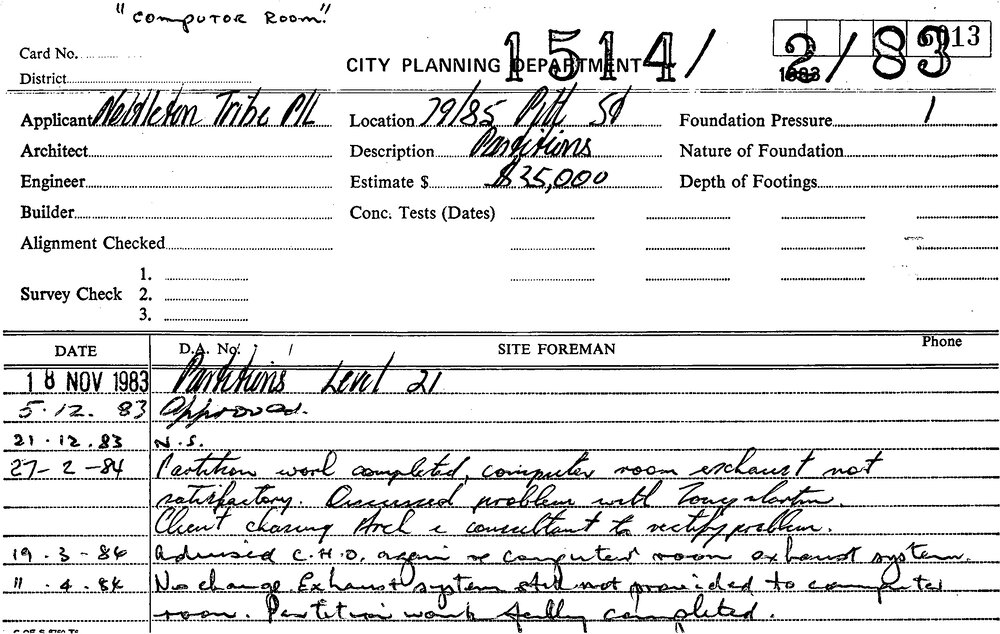 "COMPUTOR ROOM"
Card No.
1514/2/83
6013
District
CITY PLANNING DEPARTMENT
1983
Applicant Nettleton Tribe P/L Location 79/85 Pitt St Foundation Pressure 1
Architect Description Partitions Nature of Foundation
Engineer Estimate $ $35,000 Depth of Footings
Builder Conc. Tests (Dates)
Alignment Checked
1.
Survey Check 2.
3.
DATE D.A. No. SITE FOREMAN Phone
18 NOV 1983 Partitions Level 21
5.12.83 Approved.
21.12.83 N.S.
27-2-84 Partition work completed, computer room exhaust not
satisfactory. Discussed problem with Tony Martin.
Client chasing Arch & consultant to rectify problem.
19.3.84 Advised C.H.O. again re computer room exhaust system.
11.4.84 No change. Exhaust system still not provided to computer
room. Partition work fully completed.